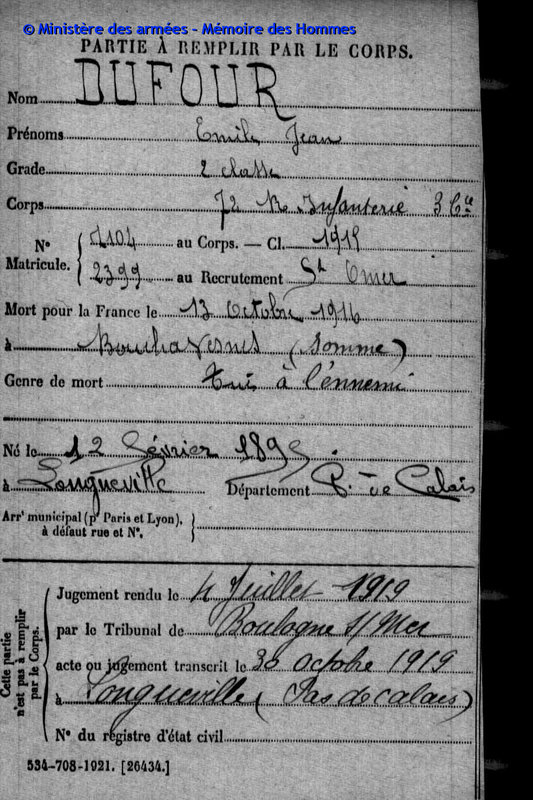 © Ministère des armées - Mémoire des Hommes
PARTIE À REMPLIR PAR LE CORPS.
Nom DUFOUR
Prénoms Emile Jean
Grade 2 classe
Corps 72 R Infanterie 3 Cie
N° Matricule. 7104 au Corps. — Cl. 1915
2399 au Recrutement St Omer
Mort pour la France le 13 Octobre 1916
à Bouchavesnes (Somme)
Genre de mort Tué à l'ennemi
Né le 12 février 1895
à Longueville Département P. de Calais
Arrt municipal (pr Paris et Lyon),
à défaut rue et N°.
Cette partie
n'est pas à remplir
par le Corps.
Jugement rendu le 4 Juillet 1919
par le Tribunal de Boulogne s/Mer
acte ou jugement transcrit le 30 octobre 1919
à Longueville (Pas de Calais)
N° du registre d'état civil
534-708-1921. [26434.]